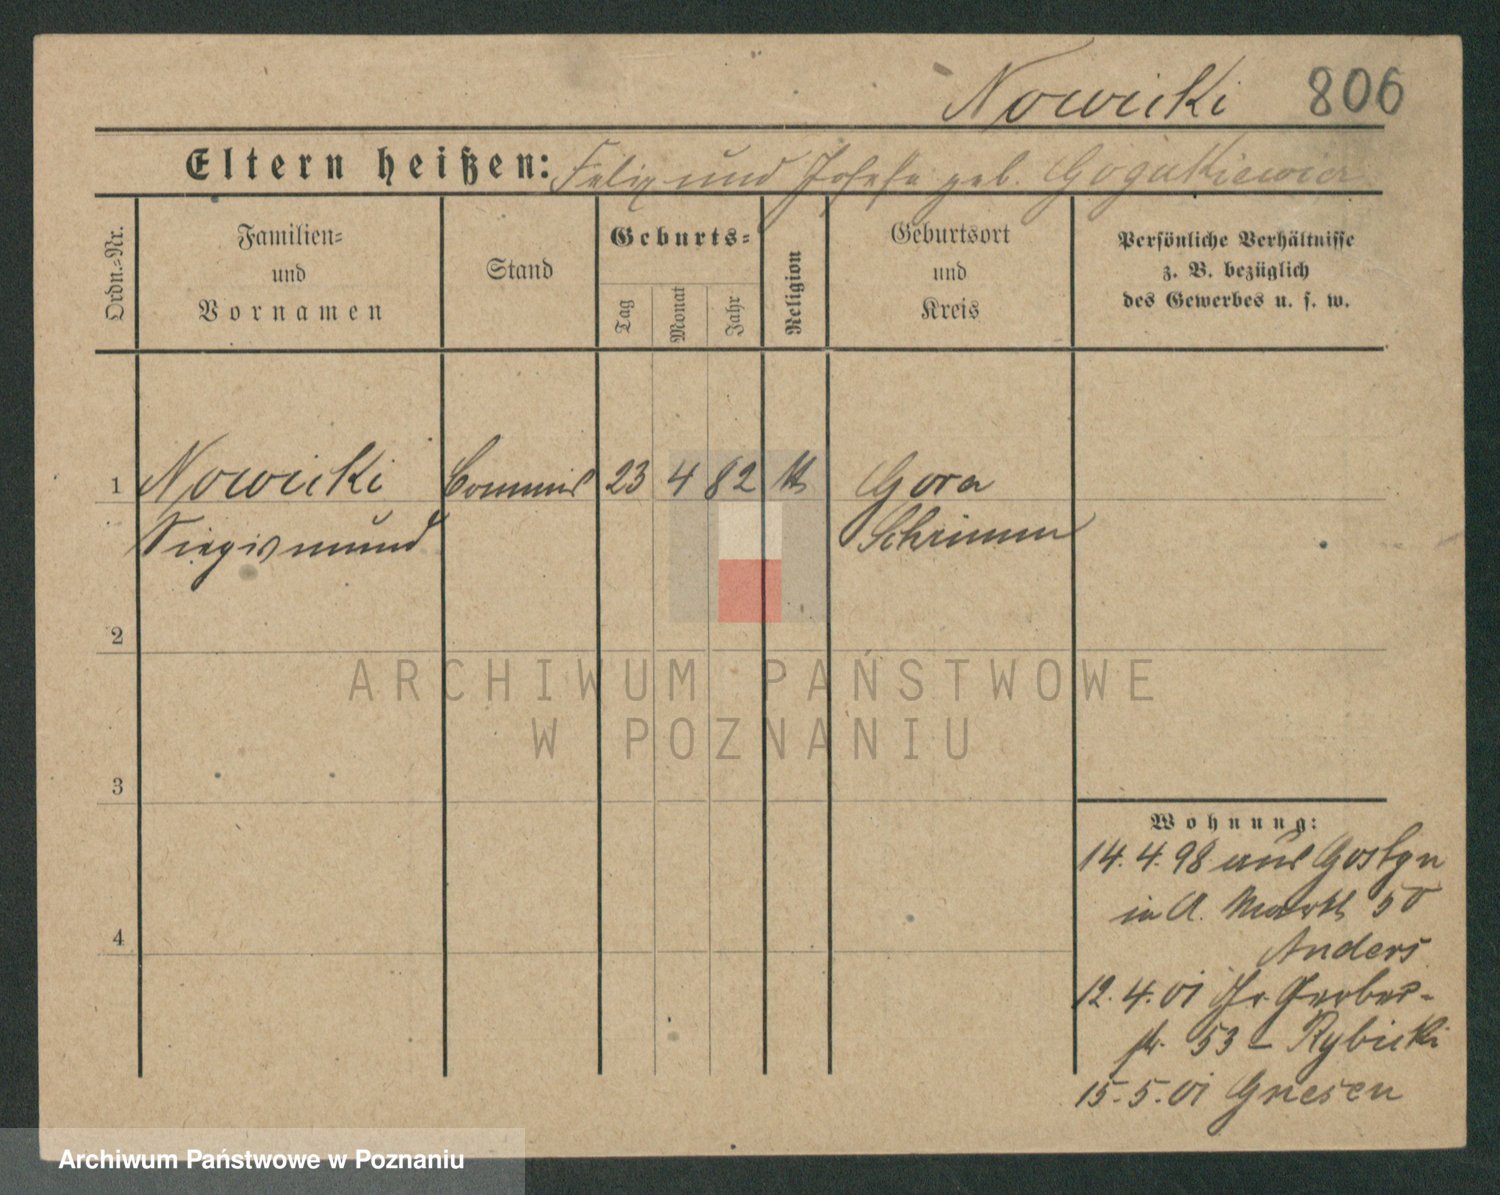 Nowicki 806
Eltern heißen: Felix und Josefa geb. Gogutkiewicz
Ordn.-Nr.
Familien-
und
Vornamen
Stand
Geburts-
Tag
Monat
Jahr
Religion
Geburtsort
und
Kreis
Persönliche Verhältnisse
z. B. bezüglich
des Gewerbes u. s. w.
1 Nowicki Commis 23 4 82 Gora
Siegismund Schrimm
2
ARCHIWUM PAŃSTWOWE
W POZNANIU
3
4
Wohnung:
14. 4. 98 aus Gostyn
in A. Markt 50
Anders
12. 4. 01 Gerber-
str. 53 – Rybicki
15. 5. 01 Gnesen
Archiwum Państwowe w Poznaniu